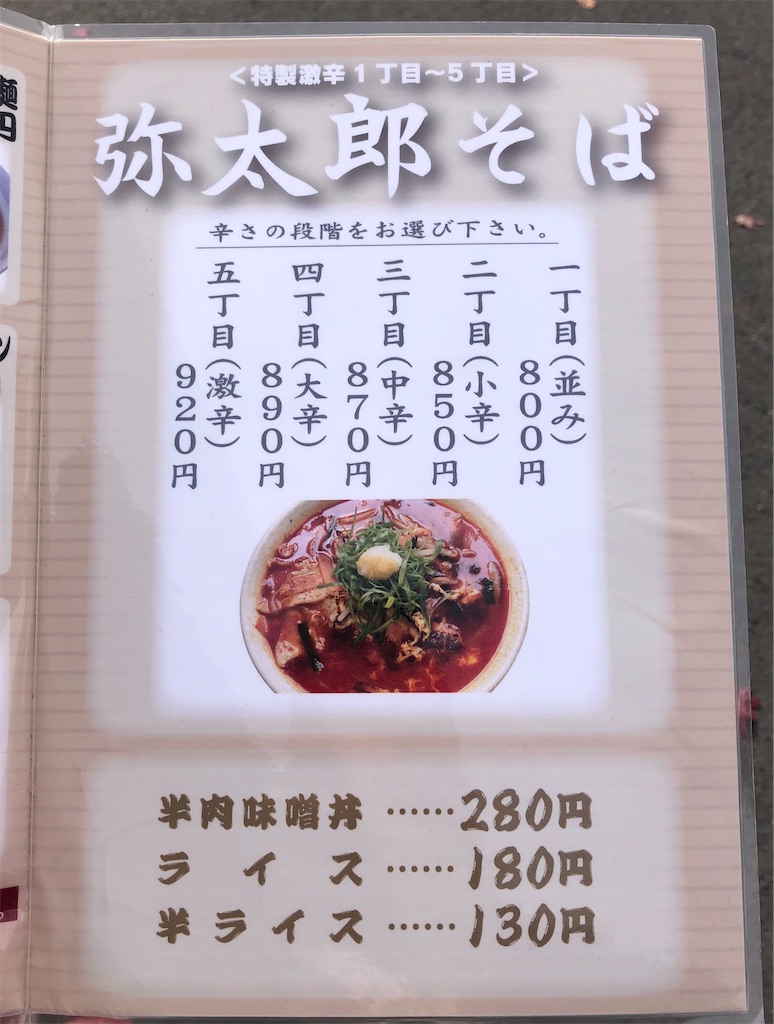 ＜特製激辛１丁目～５丁目＞
弥太郎そば
辛さの段階をお選び下さい。
一丁目（並み）
８００円
二丁目（小辛）
８５０円
三丁目（中辛）
８７０円
四丁目（大辛）
８９０円
五丁目（激辛）
９２０円
半肉味噌丼……280円
ライス……180円
半ライス……130円
麺
円
ン